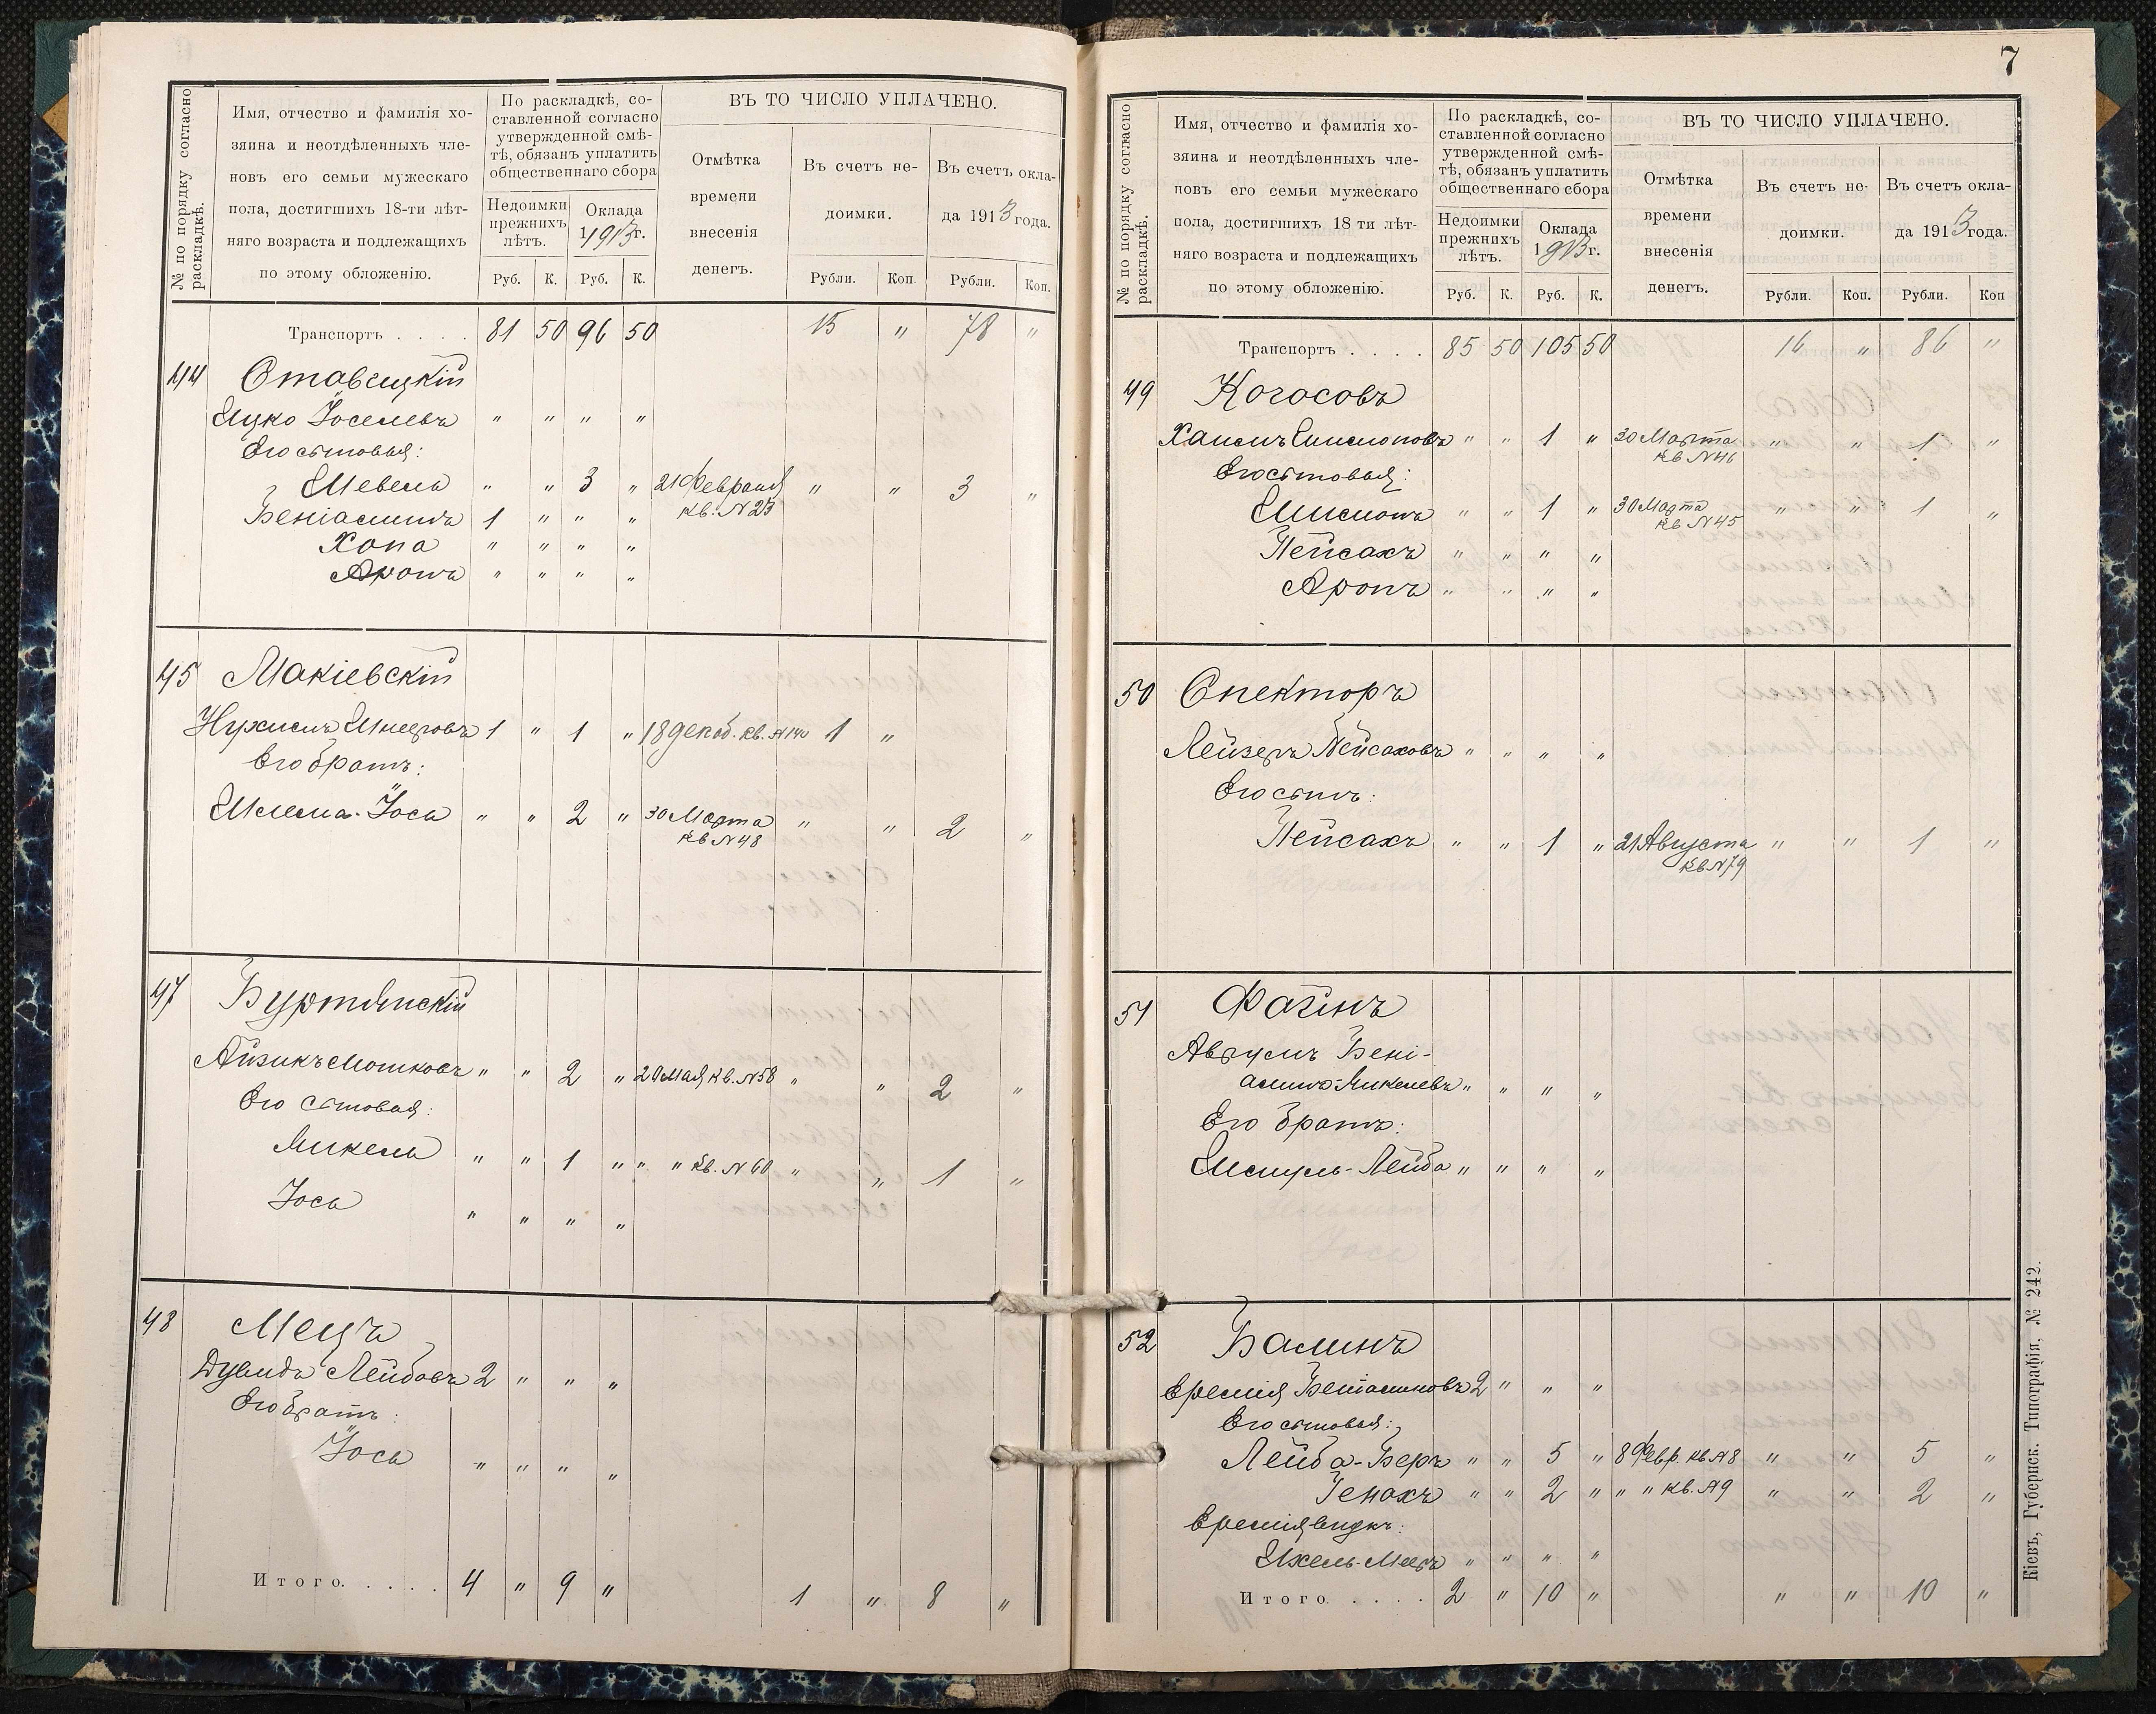 № по порядку согласно раскладкѣ.
Имя, отчество и фамилія хо-
зяина и неотдѣленныхъ чле-
новъ его семьи мужескаго
пола, достигшихъ 18-ти лѣт-
няго возраста и подлежащихъ
по этому обложенію.
По раскладкѣ, со-
ставленной согласно
утвержденной смѣ-
тѣ, обязанъ уплатить
общественнаго сбора
Недоимки
прежнихъ
лѣтъ.
Оклада
1913г.
Руб. К. Руб. К.
ВЪ ТО ЧИСЛО УПЛАЧЕНО.
Отмѣтка
времени
внесенія
денегъ.
Въ счетъ не-
доимки.
Въ счетъ окла-
да 1913 года.
Рубли. Коп. Рубли. Коп.
Транспортъ . . . . 81 50 96 50 15 " 78 "
44 Ставицкій
Ицко Іоселевъ " " " "
Его сыновья:
Шевель " " 3 " 21 Февраля " " 3 "
кв. N 23
Беніаминъ 1 " " "
Хона " " " "
Аронъ " " " "
45 Макіевскій
Нухимъ Шнееровъ 1 " 1 " 18 декаб. кв. N 140 1 "
Его братъ:
Шлема-Іось " " 2 " 30 Марта " " 2 "
кв N 48
47 Буртянскій
Айзикъ Мошковъ " " 2 " 20 Мая кв. N 58 " " 2 "
Его сыновья:
Микель " " 1 " " " кв. N 60 " " 1 "
Іось " " " "
48 Мецъ
Дувидъ Лейбовъ 2 " " "
Его братъ:
Іось " " " "
Итого. . . . . 4 " 9 " 1 " 8 "
7
№ по порядку согласно раскладкѣ.
Имя, отчество и фамилія хо-
зяина и неотдѣленныхъ чле-
новъ его семьи мужескаго
пола, достигшихъ 18 ти лѣт-
няго возраста и подлежащихъ
по этому обложенію.
По раскладкѣ, со-
ставленной согласно
утвержденной смѣ-
тѣ, обязанъ уплатить
общественнаго сбора
Недоимки
прежнихъ
лѣтъ.
Оклада
1913г.
Руб. К. Руб. К.
ВЪ ТО ЧИСЛО УПЛАЧЕНО.
Отмѣтка
времени
внесенія
денегъ.
Въ счетъ не-
доимки.
Въ счетъ окла-
да 1913 года.
Рубли. Коп. Рубли. Коп
Транспортъ . . . . 85 50 105 50 16 " 86 "
49 Когосовъ
Хаимъ Шимоновъ " " 1 " 30 Марта " " 1 "
кв N 46
Его сыновья:
Шимонъ " " 1 " 30 Марта " " 1 "
кв N 45
Пейсахъ " " " "
Аронъ " " " "
50 Спекторъ
Лейзеръ Пейсаховъ " " " "
Его сынъ:
Пейсахъ " " 1 " 21 Августа " " 1 "
кв N 79
51 Фагинъ
Аврумъ Бені-
аминъ-Микелевъ " " " "
Его братъ:
Шмуль-Лейба " " " "
52 Балинъ
Еремія Беніаминовъ 2 " " "
Его сыновья:
Лейба-Беръ " " 5 " 8 Февр. кв. N 8 " " 5 "
Генахъ " " 2 " " " кв. N 9 " " 2 "
Еремія внукъ:
Ихель-Мееръ " " " "
Итого . . . . 2 " 10 " " " 10 "
Кіевъ, Губернск. Типографія, № 242.